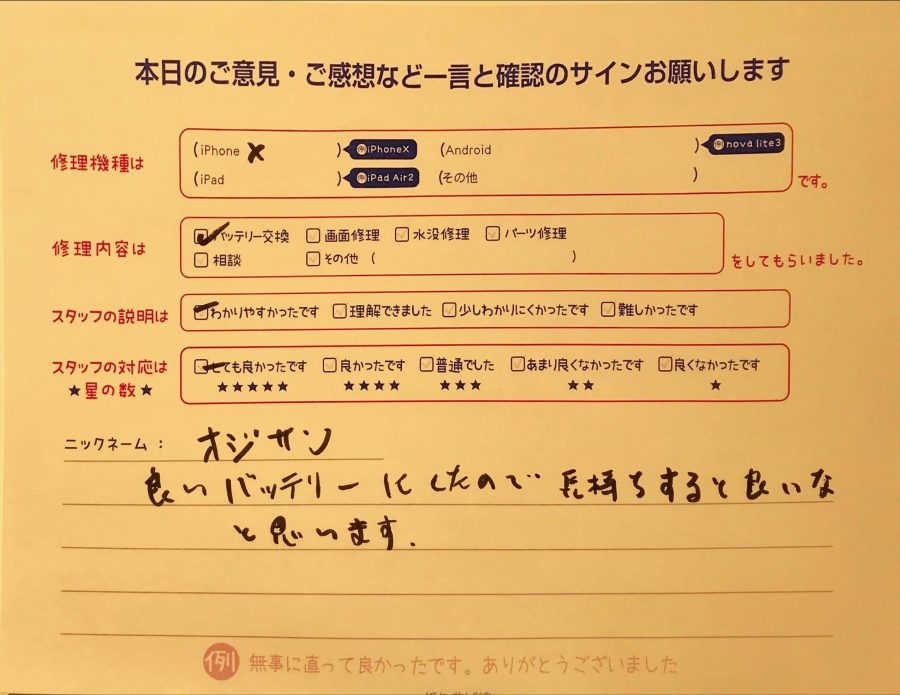 本日のご意見・ご感想など一言と確認のサインお願いします
修理機種は
(iPhone X ) 例iPhoneX (Android ) 例nova lite3
(iPad ) 例iPad Air2 (その他 ) です。
修理内容は
バッテリー交換 画面修理 水没修理 パーツ修理
相談 その他 ( ) をしてもらいました。
スタッフの説明は わかりやすかったです 理解できました 少しわかりにくかったです 難しかったです
スタッフの対応は とても良かったです 良かったです 普通でした あまり良くなかったです 良くなかったです
★星の数★ ★★★★★ ★★★★ ★★★ ★★ ★
ニックネーム: オジサン
良いバッテリーにしたので長持ちすると良いな
と思います.
例 無事に直って良かったです。ありがとうございました